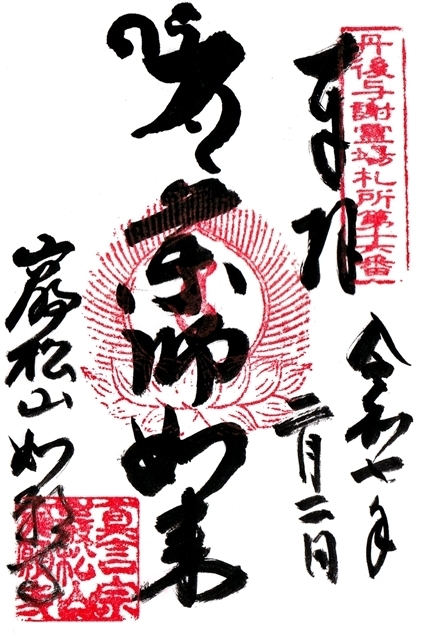 丹後与謝霊場札所第十六番
奉拝
令和七年
二月二日
薬師如来
巌松山如願寺
真言宗
巌松山
如願寺